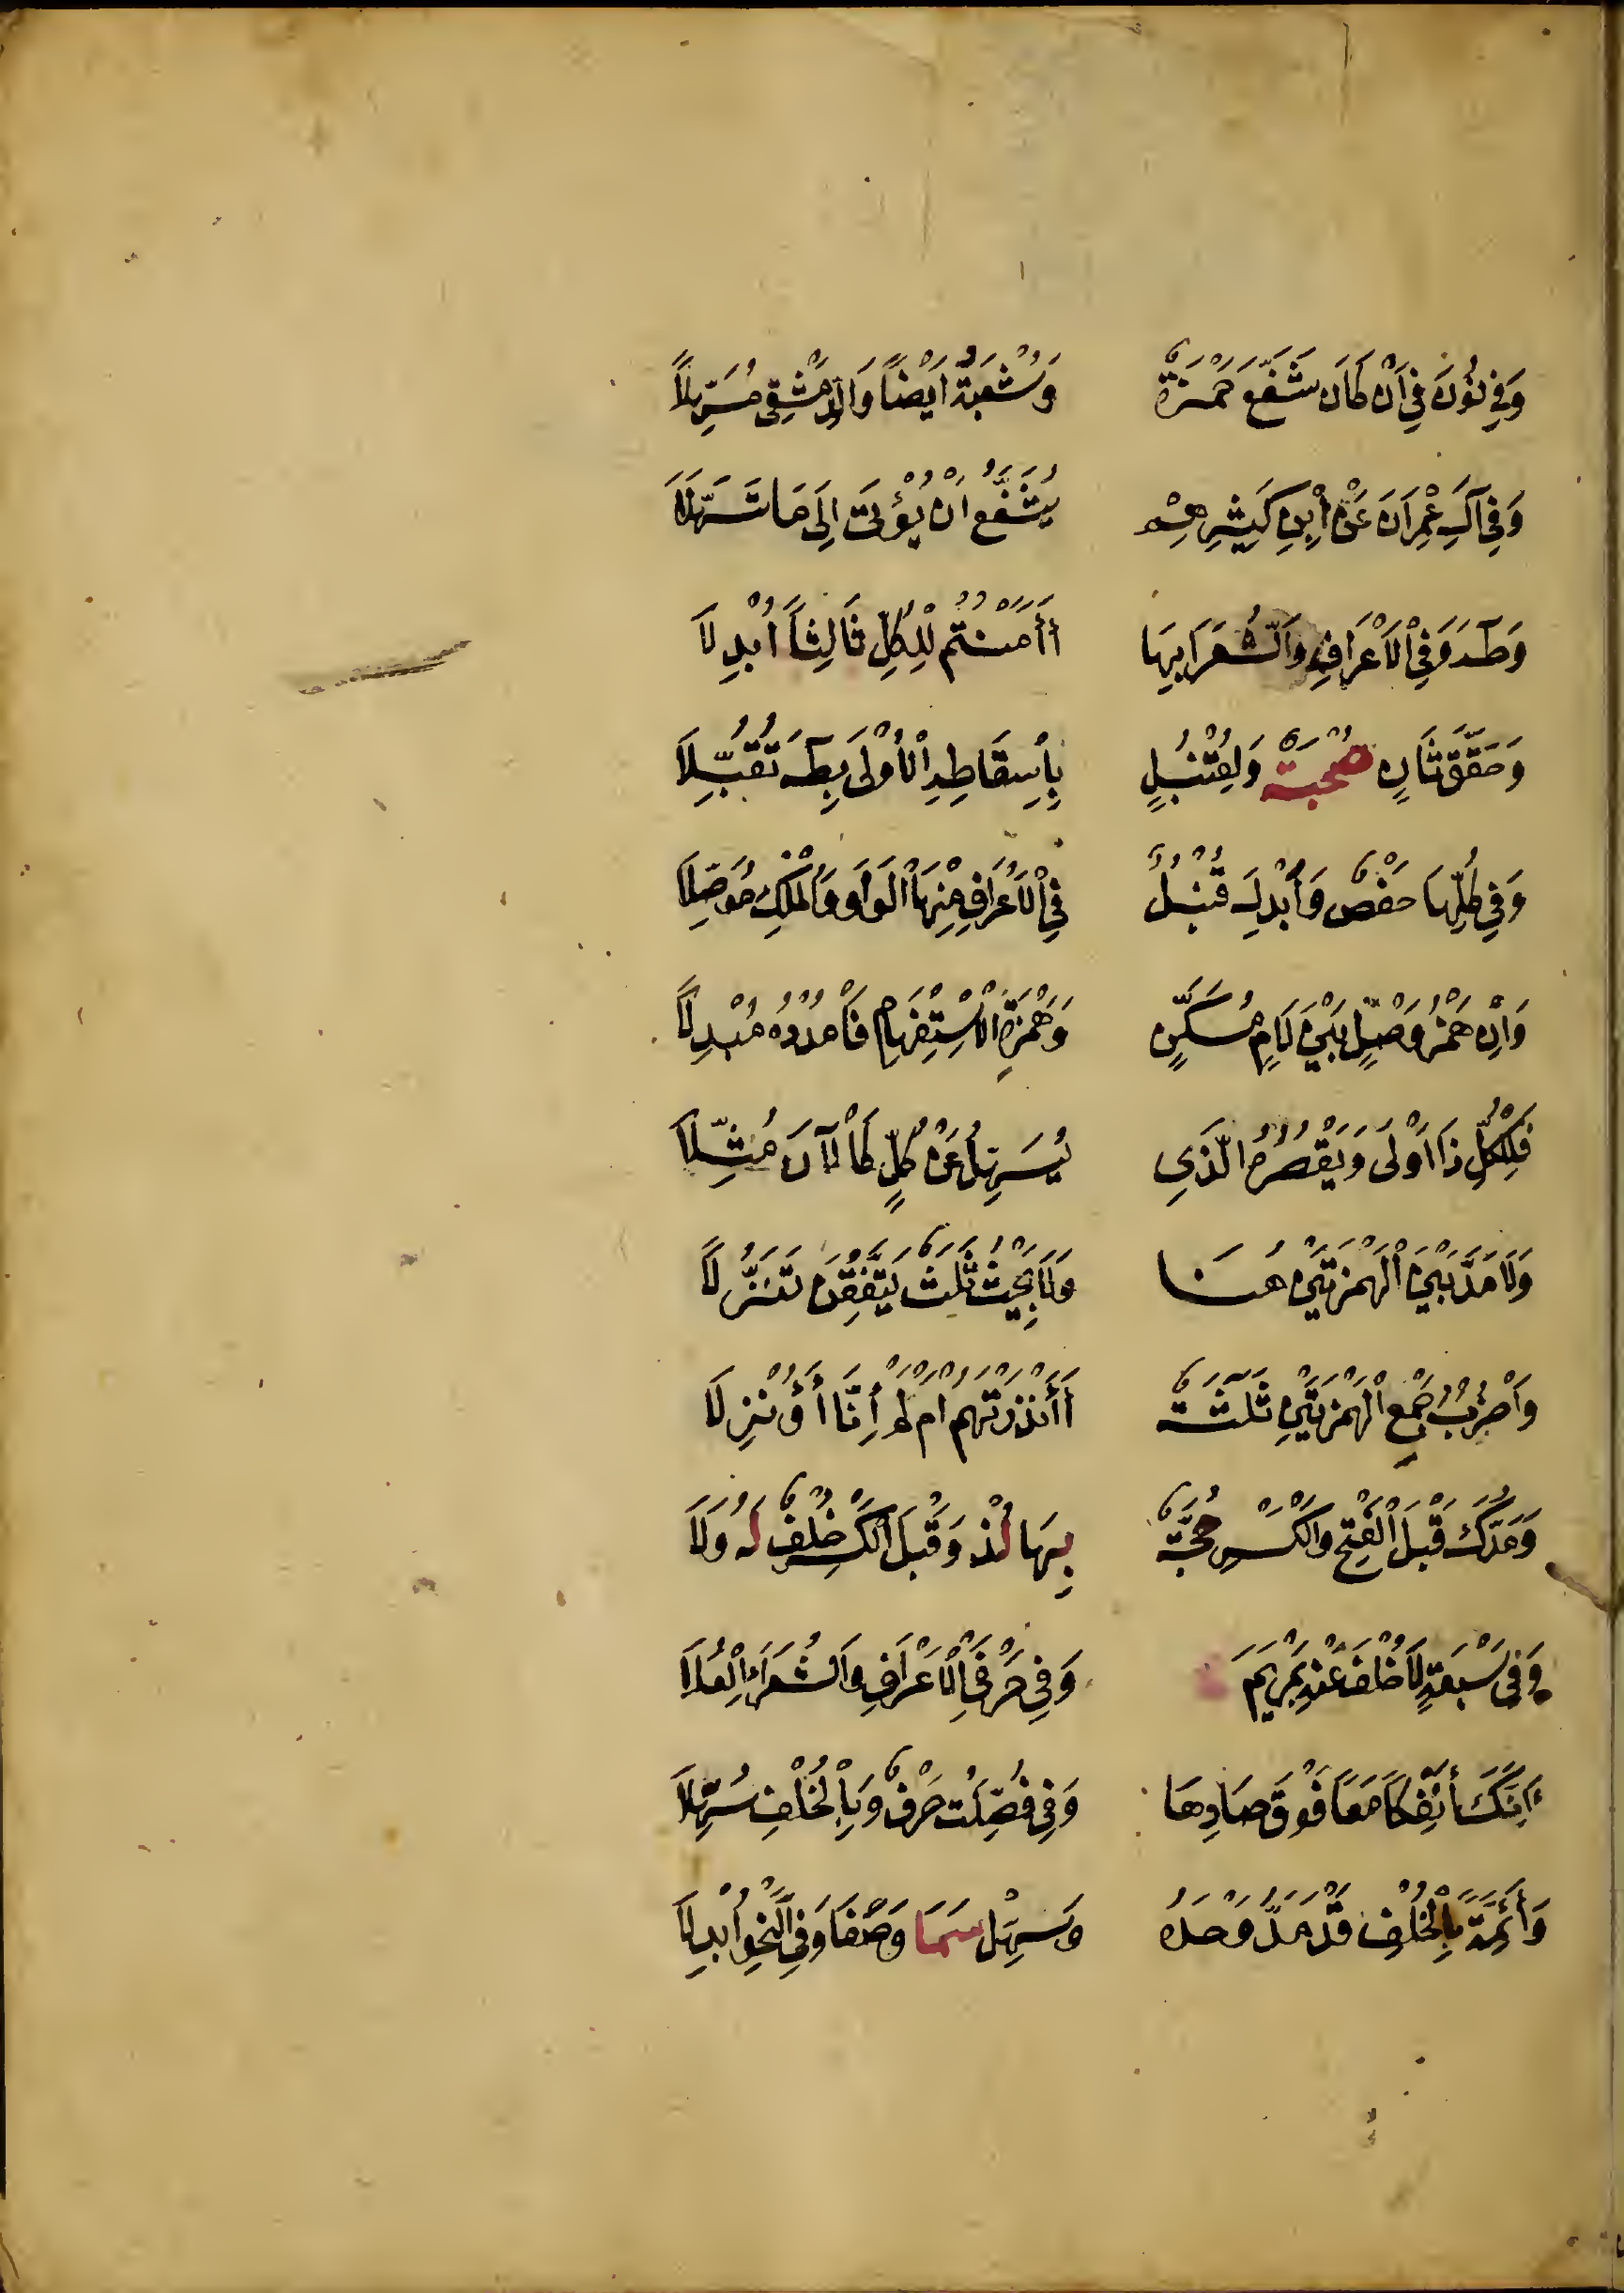 وَفِي نُونَ فِي اَنْ كَانَ شَفَّعَ حَمْزَةٌ وَشُعْبَةُ اَيْضًا وَالدِّمَشْقِى مُسَهِّلاً
وَفِي آلِ عِمْرَانَ عَنْ اِبْنِ كَثِيرِهِمْ يُشَفَّعُ اَنْ يُؤْتَى اِلَى مَا تَسَهَّلَا
وَطَهَ وَفِي اْلاَعْرَافِ وَالشُّعَرَا بِهَا أَأَمَنْتُمُ لِلْكُلِّ ثَالِثاً اُبْدِلاَ
وَحَقَّقَ ثَانٍ صُحْبَةٌ وَلِقُنْبُلٍ بِاِسْقَاطِهِ اْلاُولَى بِطَهَ تُقُبِّلَا
وَفِي كُلِّهَا حَفْصٌ وَاَبْدَلَ قُنْبُلٌ فِي اْلاَعْرَافِ مِنْهَا الْوَاوَ وَالْمُلْكِ مُوَصِّلَا
وَاِنْ هَمْزُ وَصْلٍ بَيْنَ لَامٍ مُسَكَّنٍ وَهَمْزَةِ اْلاِسْتِفْهَامِ فَامْدُدْهُ مُبْدِلًا
فَلِلْكُلِّ ذَا اَوْلَى وَيَقْصُرُهُ الَّذِى يُسَهِّلُ عَنْ كُلٍّ كَاَلآنَ مُثِّلَا
وَلَا مَدَّ بَيْنَ الْهَمْزَتَيْنِ هُنَا وَلَا بِحَيْثُ ثَلَثٌ يَتَّفِقْنَ تَنَزُّلًا
وَاَضْرُبُ جَمْعِ الْهَمْزَتَيْنِ ثَلَثَةٌ أَأَنْذَرْتَهُمْ اَمْ لَمْ أَإِنَّا أَؤُنْزِلَا
وَمَدُّكَ قَبْلَ الْفَتْحِ وَالْكَسْرِ حُجَّةٌ بِهَا لُذْ وَقَبْلَ الْكَسْرِ خُلْفٌ لَهُ وَلَا
وَفِي سَبْعَةٍ لَا خُلْفَ عَنْهُ بِمَرْيَمَ وَفِي حَرْفَيِ اْلاَعْرَافِ وَالشُّعَرَاءِ الْعُلَا
اَئِنَّكَ أَئِفْكًا مَعًا فَوْقَ صَادِهَا وَفِي فُصِّلَتْ حَرْفٌ وَبِالْخُلْفِ سُهِّلَا
وَأَئِمَّةً بِالْخُلْفِ قَدْ مَدَّ وَحْدَهُ وَسَهِّلْ سَمَا وَصْفًا وَفِي النَّحْوِ اُبْدِلَا